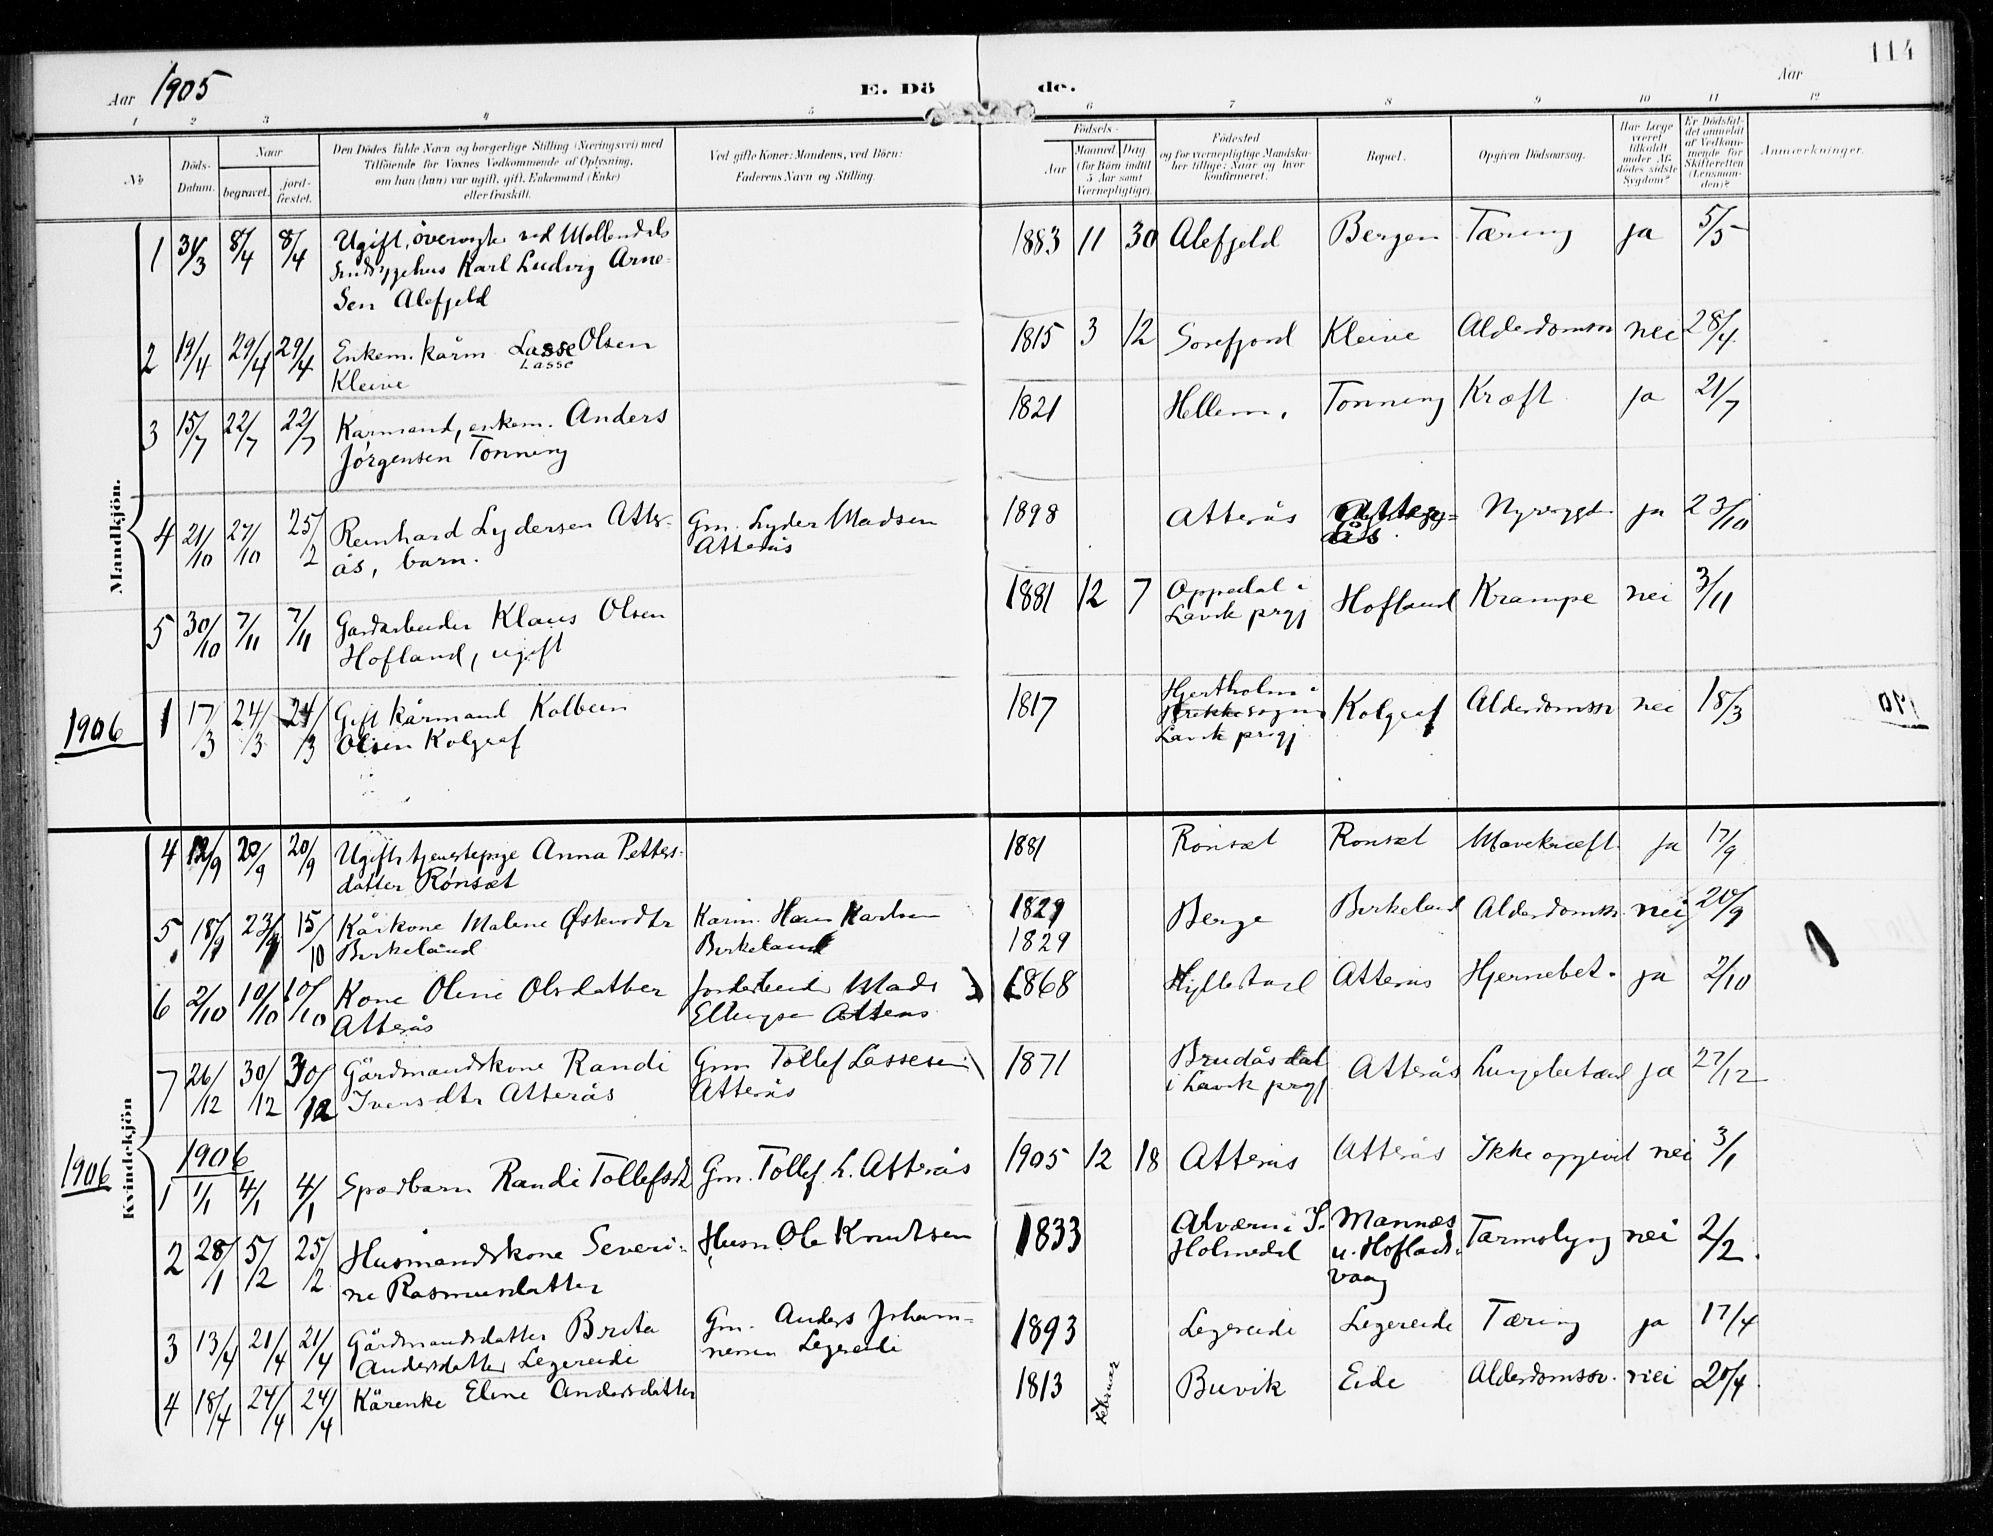 114
Aar 1905
E. Dö de.
Aar
1 2 3 4 5 6 7 8 9 10 11 12
No
Döds-
Datum.
Naar
begravet.
jord-
fæstet.
Den Dödes fulde Navn og borgerlige Stilling (Næringsvei) med
Tilföiende for Voxnes Vedkommende af Oplysning,
om han (hun) var ugift, gift, Enkemand (Enke)
eller fraskilt.
Ved gifte Koner: Mandens, ved Börn:
Faderens Navn og Stilling.
Födsels-
Aar
Maaned Dag
(for Börn indtil
5 Aar samt
Værnepligtige).
Födested
og for værnepligtige Mandska-
ber tillige: Naar og hvor
konfirmeret.
Bopæl.
Opgiven Dödsaarsag.
Har Læge
været
tilkaldt
under Af-
dödes sidste
Sygdom?
Er Dödsfal-
det anmeldt
af Vedkom-
mende for
Skifteretten
(Lensman-
den)?
Anmærkninger.
Mandkjön.
1 31/3 8/4 8/4 Ugift, övervogter ved Möllendals 1883 11 30 Alefjeld Bergen Tæring ja 5/5
Sindsygehus Karl Ludvig Arne-
sen Alefjeld
2 19/4 29/4 29/4 Enkem. kårm Lasse Olsen 1815 3 12 Sørefjord Kleive Alderdomssv nei 28/4
Lasse
Kleive
3 15/7 22/7 22/7 Kårmand, enkem. Anders 1821 Hellem, Tonning Kræft ja 21/7
Jörgensen Tonning
4 21/10 27/10 25/2 Reinhard Lydersen Atter- Gm. Lyder Madsen 1898 Atterås Atter- Nyresygd. ja 23/10
ås, barn. Atterås ås.
5 30/10 7/11 7/11 Gardarbeider Klaus Olsen 1881 12 7 Oppedal i Hofland Krampe nei 3/11
Hofland, ugift Lavik prgj
1906
1 17/3 24/3 24/3 Gift kårmand Kolbein 1817 Hjertholm i Kolgraf Alderdomssv nei 18/3
Olsen Kolgraf
Lavik prgj
Kvindekjön
4 12/9 20/9 20/9 Ugift tjenestepige Anna Petters- 1881 Rönset Rönset Mavekræft ja 17/9
datter Rönset
5 18/9 23/9 15/10 Kårkone Malene Østensdtr Kårm. Hans Karlsen 1829 Berge Birkeland Alderdomssv nei 20/9
Birkeland Birkeland 1829
6 2/10 10/10 10/10 Kone Oline Olsdatter Jordarbeider Mads 1868 Hyllestad Atterås Hjernebet. ja 2/10
Atterås Ellingsen Atterås
7 26/12 30/12 30/12 Gårdmandskone Randi Gm Tollef Lassesen 1871 Brudåsdal Atterås Lungebetænd ja 27/12
Iversdtr Atterås Atterås i Lavik prgj
1906
1906
1 1/1 4/1 4/1 Spædbarn Randi Tollefsdt Gm. Tollef L. Atterås 1905 12 18 Atterås Atterås Ikke opgivet nei 3/1
2 28/1 5/2 25/2 Husmandskone Severi- Husm. Ole Knutsen 1833 Alværn i Y. Mannæs Tarmslyng nei 2/2
ne Rasmusdatter Holmedal u. Hoflands-
vaag
3 13/4 21/4 21/4 Gårdmandsdatter Brita Gm. Anders Johan- 1893 Legereide Legereide Tæring ja 17/4
Andersdatter Legereide nesen Legereide
4 18/4 24/4 24/4 Kårenke Eline Andersdatter 1813 Februar Buvik Eide Alderdomssv. nei 20/4